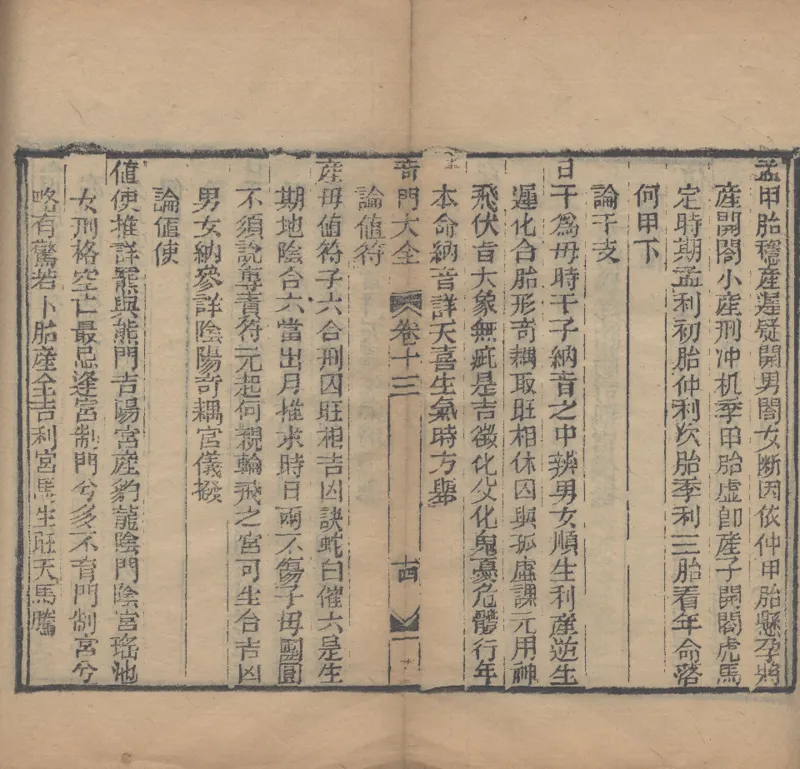 孟甲胎穩産遲疑開男闔女斷因依仲甲胎懸孕將
産開闔小産刑冲机季甲胎虛即産子開闔虎馬
定時期孟利初胎仲利次胎季利三胎看年命落
何甲下
論干支
日干爲母時干子納音之中辨男女順生利産逆生
遲化合胎形奇耦取旺相休囚與孤虛課元用神
飛伏盲大象無疵是吉徵化父化鬼憂危髓行年
本命納音詳天喜生氣時方舉
奇門大全
卷十三
十四
論值符
産母值符子六合刑囚旺相吉凶訣蛇白催六是生
期地陰合六當出月推求時日兩不傷子母團圓
不須說專責符元起何親輪飛之宮可生合吉凶
男女納參詳陰陽奇耦宮儀撥
論值使
值使推詳羆與熊門吉陽宮産豹龍陰門陰宮瑤池
女刑格空亡最忌逢宮制門兮多不育門制宮兮
略有驚若卜胎産全吉利宮馬生旺天馬騰